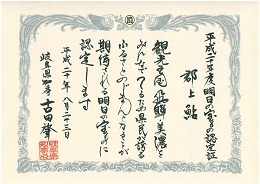 平成二十年度明日の宝もの認定証
郡上鮎
観光王国飛騨・美濃を
みんなでつくろう県民が誇る
ふるさとのじまん
期待される明日の宝ものに
認定します
平成二十年 月二十三日
岐阜県知事 古田肇